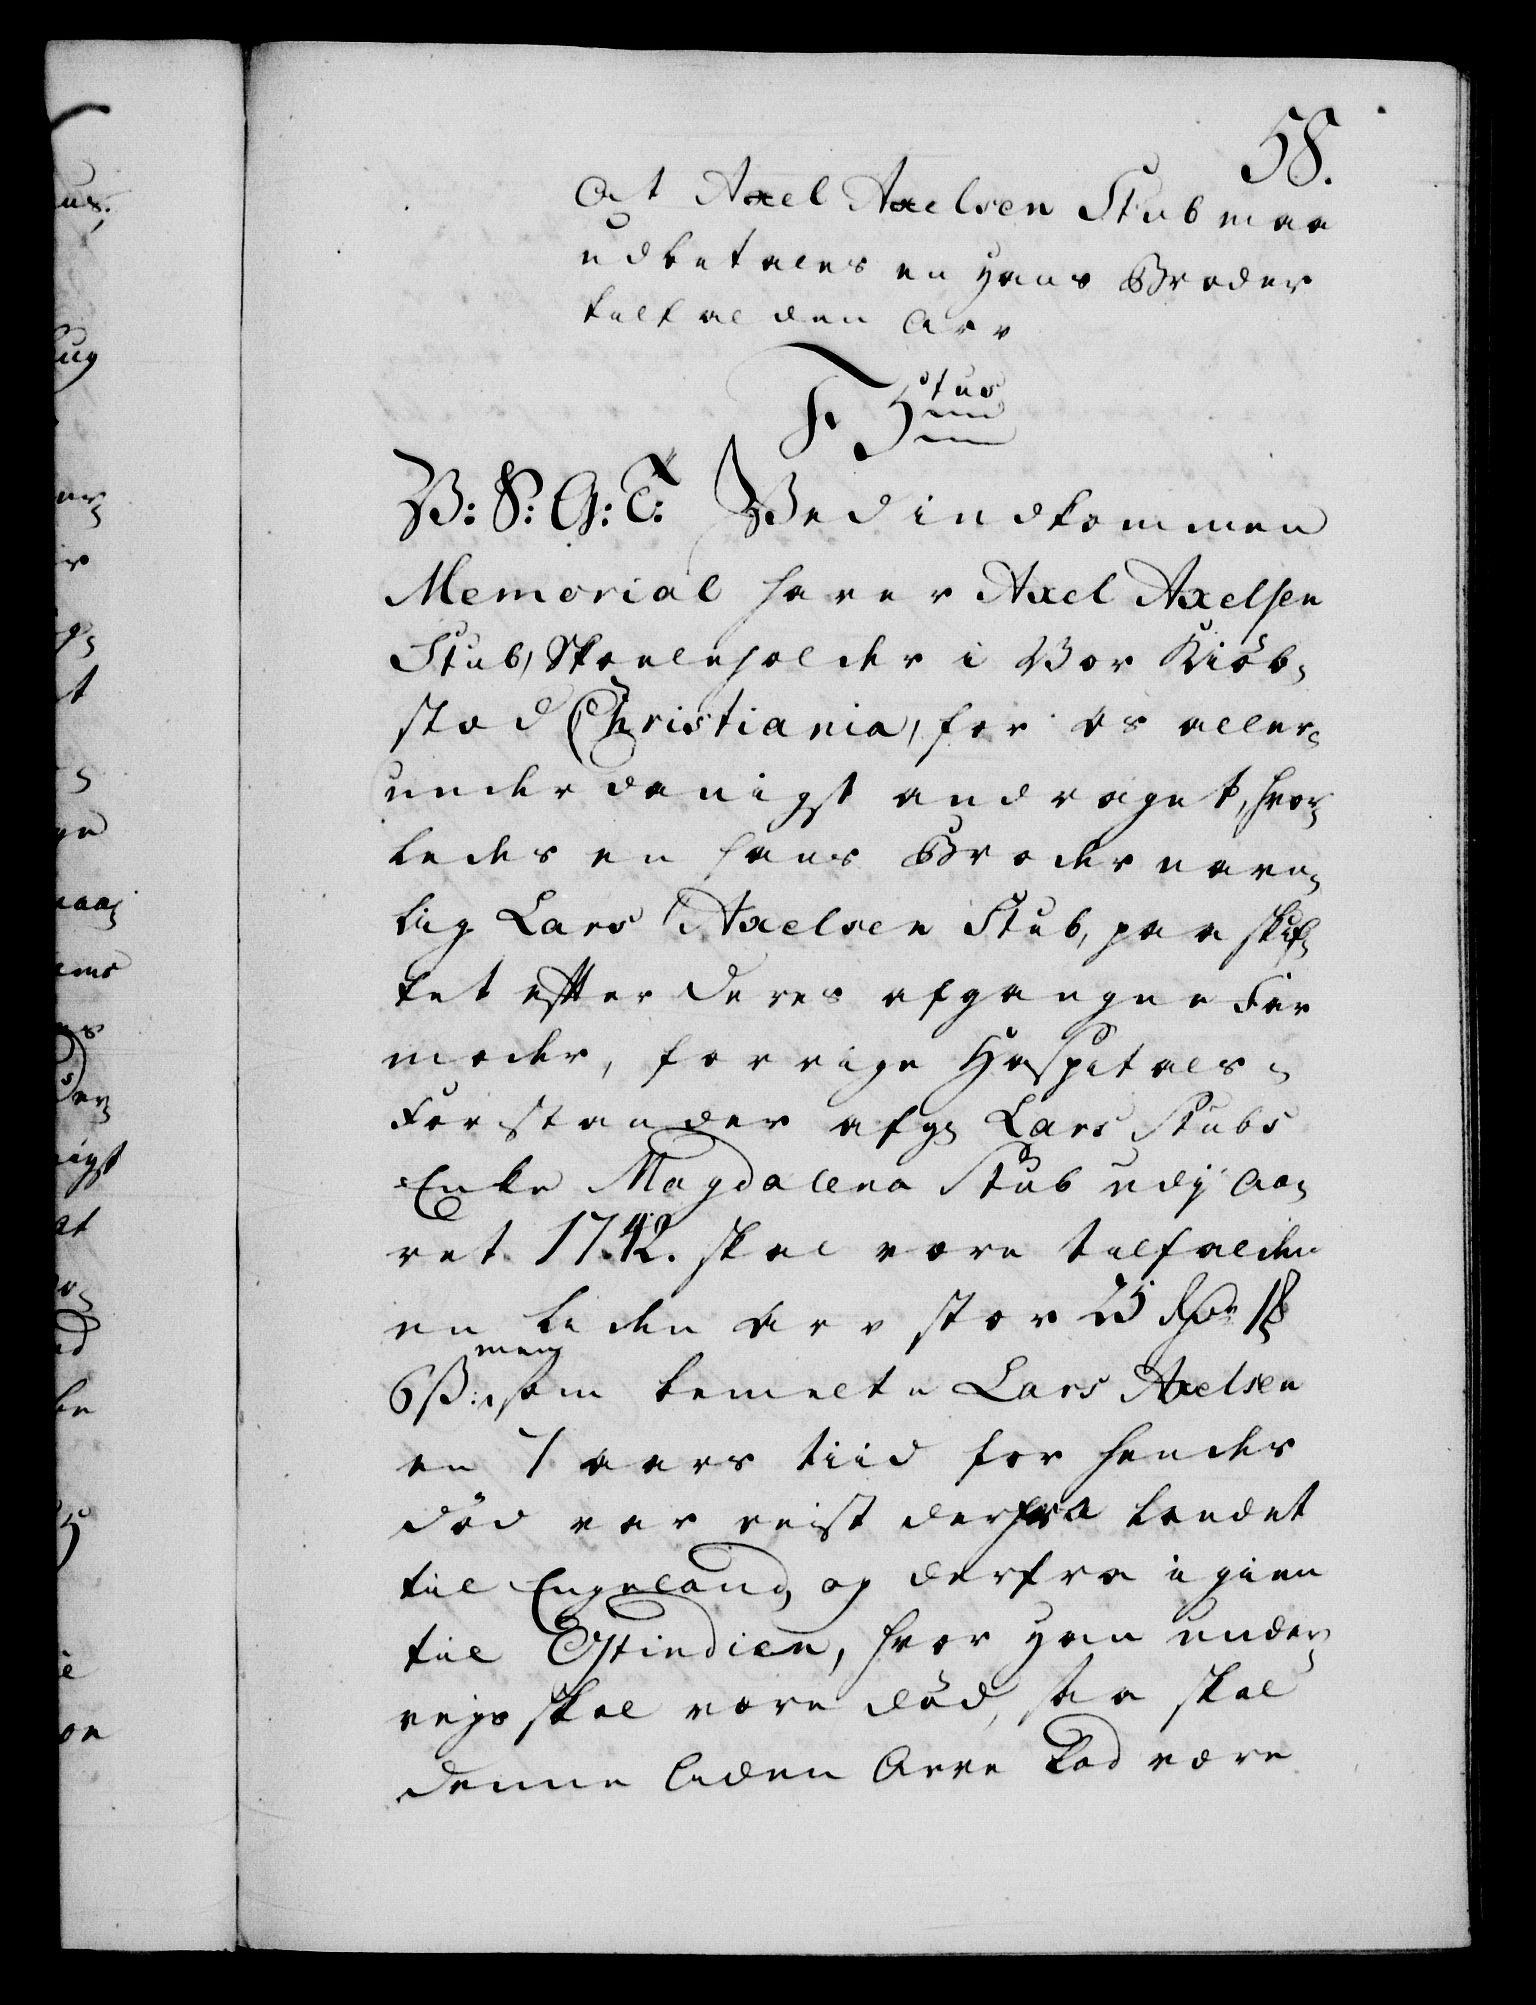 58.
At Axel Axelsen Stub maa
udbetales en hans Broder
tilfalden Arv
F 5tus
V: S: G: T: Ved indkommen
Memorial haver Axel Axelsen
Stub, Skoeleholder i Vor Kiöb-
stad Christiania, for os aller-
underdanigst andraget, hvor-
ledes en hans Broder navn-
lig Lars Axelsen Stub, paa skif-
tet efter deres afgangne Far
moder, forrige Hospitals-
Forstander afg. Lars Stubs
Enke Magdalena Stub udj Aa-
ret 1742. skal være tilfalden
en liden Arv stor 25 Rdr 1 ₰
6 ß: men som bemelte Lars Axelsen
en 7 aars tiid for hendes
död var reist derfra landet
til Engeland, og derfra igien
til Ostindien, hvor han under-
vejs skal være död, saa skal
denne liden Arve Lod være